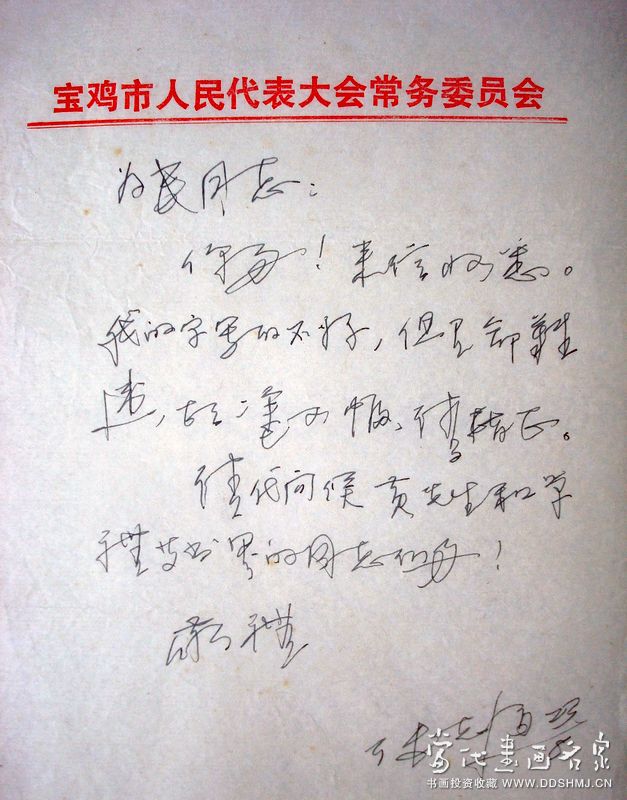 宝鸡市人民代表大会常务委员会
为民同志：
你好！来信收悉。
我的字写的不好，但是命难
违，胡涂四幅、请指正。
请代问候黄先生和学
界的同志们好！
敬礼
当代书画名家
书画投资收藏 WWW.DDSHMJ.CN